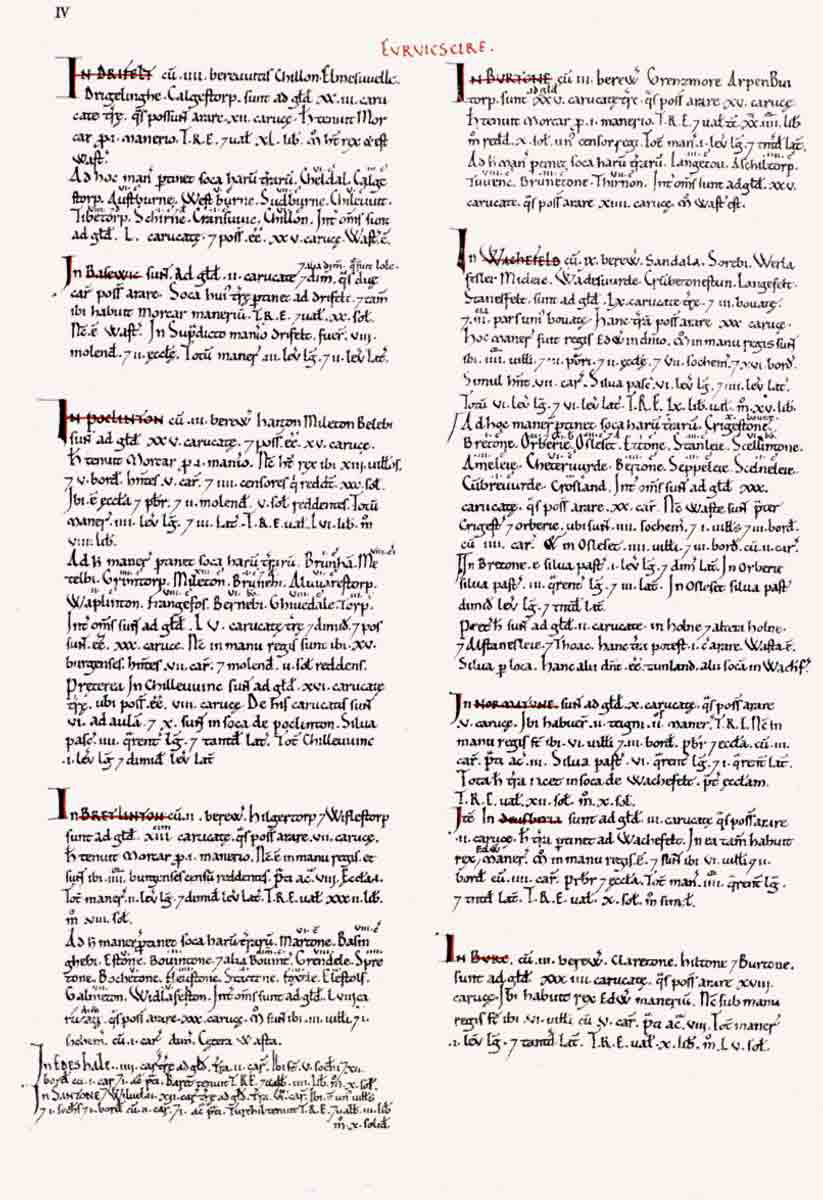 IV
EVRVICSCIRE.
In DRIFELT cū .IIII. bereuuitis Chillon. Elmesuuelle.
Drigelinghe. Calgestorp. sunt ad gld XX.III. caru
cate tre. qs possunt arare .XII. caruce. H tenuit Mor
car p.I. manerio. T.R.E. 7 ual XL. lib. M ht rex 7 est
Wast.
Ad hoc maner ptinet soca haru traru. Cheldal. Calge
storp. Austburne. Westburne. Sudburne. Chileuuit.
Tibetorp. Schirne. Cransuuic. Chillon. Int oms sunt
ad gld .L. carucate. 7 poss. ee. XXV. caruce. Wast. e.
In Basewic sunt ad gld .II. carucate 7 dim. qs due
car poss arare. Soca hui tre ptinet ad Drifelt. 7 tam
ibi habuit Morcar maneriu. T.R.E. 7 ual .XX. sol.
Nc. e Wast. In Supdicto manio Drifelt. fuer .VIII.
molend. 7 II. eccle. Totu maner .III. lev lg. 7 II. lev lat.
In POCLINTON cū .III. berew Haiton Mileton Belebi
sunt ad gld XXV. carucate. 7 poss. ee XV. caruce.
H tenuit Morcar p.I. manio. Nc ht rex ibi XIII. uillos.
7 V. bord. hntes .V. car. 7 IIII. censores q redd XXX. sol.
Ibi. e eccla 7 pbr. 7 II. molend .V. sol reddentes. Totu
maner .IIII. lev lg. 7 III. lat. T.R.E. ual .LVI. lib. m
VIII. lib.
Ad h maner ptinet soca haru traru. Brunha. Me
telbi. Grimtorp. Mileton. Brunebi. Aluuarestorp.
Waplinton. Frangefos. Bernebi. Ghiuedale. Torp.
Int oms sunt ad gld .LV. carucate tre 7 dimid. 7 pos
sunt. ee. XXX. caruce. Nc in manu regis sunt ibi .XV.
burgenses. hntes VII. car. 7 molend .II. sol reddens.
Preterea In Chilleuuinc sunt ad gld .XVI. carucate
tre. ubi poss. ee. VIII. caruce. De his carucatis sunt
VI. ad aula. 7 X. sunt in soca de Poclinton. Silua
past. IIII. qrent lg. 7 tantd lat. Tot Chilleuuinc
.I. lev lg 7 dimid lev lat
In BRETLINTON cū .II. berew Hilgertorp 7 Wiflestorp
sunt ad gld XIII carucate. qs poss arare. VII. caruce.
H tenuit Morcar p.I. manerio. Nc. e in manu regis. et
sunt ibi .IIII. burgenses censu reddentes. pti ac. VIII. Eccla.
Tot maner. II. lev lg. 7 dimid lev lat. T.R.E. ual XXXII. lib.
m VIII. sol.
Ad h maner ptinet soca haru traru. Martone. Basin
ghebi. Estone. Bouintone. 7 alia Bouint. Grendele. Spre
tone. Bochetone. Fleustone. Staktone. Foxole. Elestolf.
Galmeton. Widlafeston. Int oms sunt ad gld .LVII. ca
qs poss arare. XXX. caruce. m sunt ibi .III. uilli. 7 I.
sochem. cu .I. car 7 dim. Cetera Wasta.
In ESESHALE .IIII. car tre ad gld. Tra .II. car. Ibi st. V. sochi 7 XII.
bord cu .I. car 7 I. ac pti. Baret tenuit T.R.E. 7 ualb. IIII. lib. m. X. sol.
In SANTONE 7 Wilsidai .XII. car tre ad gld. Tra VI. car. Ibi
7 I. sochs 7 I. bord cu .II. car. 7 I. ac pti. Turchil tenuit T.R.E. 7 ualb. III. lib
m. X. solid
In BURTONE cū III. berew Grenzmore Arpen Bui
torp. sunt XXV. carucate tre. qs poss arare XV. caruce.
H tenuit Morcar p.I. manerio. T.R.E. 7 ual te XXIIII. lib
m redd. X. sol. un censor regi. Tot man. I. lev lg. 7 tntd lat.
Ad h man ptinet soca haru traru. Langetou. Aschiltorp.
Tuuenc. Brunetone. Thirnon. Int oms sunt ad gld. XXV.
carucate. qs poss arare XIII. caruce. m Wast est.
In Wachefeld cū .IX. berew. Sandala. Sorebi. Werla
fesler. Micleie. Wadesuurde. Crubetonestun. Langefelt.
Stanesfelt. sunt ad gld .LX. carucate tre. 7 III. bouate.
7 III. pars uni bouate. Hanc tra poss arare XXX caruce.
Hoc maner fuit regis Edw in dnio. m in manu regis sunt
ibi .IIII. uilli. 7 III. pbri. 7 II. eccle. 7 VII. sochem. 7 XVI. bord.
Simul hnt .VII. car. Silua past. VI. lev lg. 7 IIII. lev lat.
Totu VI. lev lg. 7 VI. lev lat. T.R.E. LX. lib. ual. m. XV. lib.
Ad hoc maner ptinet soca haru traru. Crigestone.
Bretone. Orberie. Osleset. Ettone. Stanleie. Scellintone.
Ameleie. Cheteruurde. Bertone. Seppeleie. Scelneleie.
Cubreuurde. Crosland. Int oms sunt ad gld XXX.
carucate. qs poss arare. XX. car. Nc Waste sunt. pter
Crigest 7 Orberie. ubi sunt .IIII. sochem. 7 I. uills 7 III. bord.
cu IIII. car. 7 in Osleset .IIII. uilli. 7 III. bord. cu .II. car.
In Bretone. e silua past. I. lev lg. 7 dimi lat. In Orberie
silua past. III. qrent lg. 7 III. lat. In Osleset silua past
dimid lev lg. 7 tntd lat.
Preth sunt ad gld .II. carucate. in Holne. 7 altera Holne.
7 Alstanesleie. 7 Thoac. Hanc tra potest .I. car arare. Wasta. e.
Silua p loca. Hanc alii dnt. ee tainland. alii soca in Wachef.
In NORMATUNE sunt ad gld. X. carucate. qs poss arare
.V. caruce. Ibi habuer. II. teigni .II. maner. T.R.E. Nc in
manu regis st ibi .VI. uilli 7 III. bord. pbr 7 eccla. cu III.
car. pti ac. III. Silua past. VI. qrent lg. 7 I. qrent lat.
Tota h tra iacet in soca de Wachefelt. pt ecclam.
T.R.E. ual. XII. sol. m. X. sol.
Ite In Deusberia sunt ad gld .III. carucate qs poss arare
.II. caruce. H tra ptinet ad Wachefelt. In ea tam habuit
rex maner. m in manu regis. e. 7 sunt ibi VI. uilli 7 II.
bord cu IIII. car. Prbr 7 eccla. Tot man. IIII. qrent lg.
7 tntd lat. T.R.E. ual. X. sol. m simil.
In BURC. cū .III. berew. Claretone. Hiltone 7 Burtone.
sunt ad gld XXXIIII. carucate. qs poss arare XVIII.
caruce. Ibi habuit rex Edw maneriu. Nc sub manu
regis st ibi .XVI. uilli cu .V. car. pti ac. VIII. Tot maner
.I. lev lg. 7 tantd lat. T.R.E. ual. X. lib. m. LV. sol.